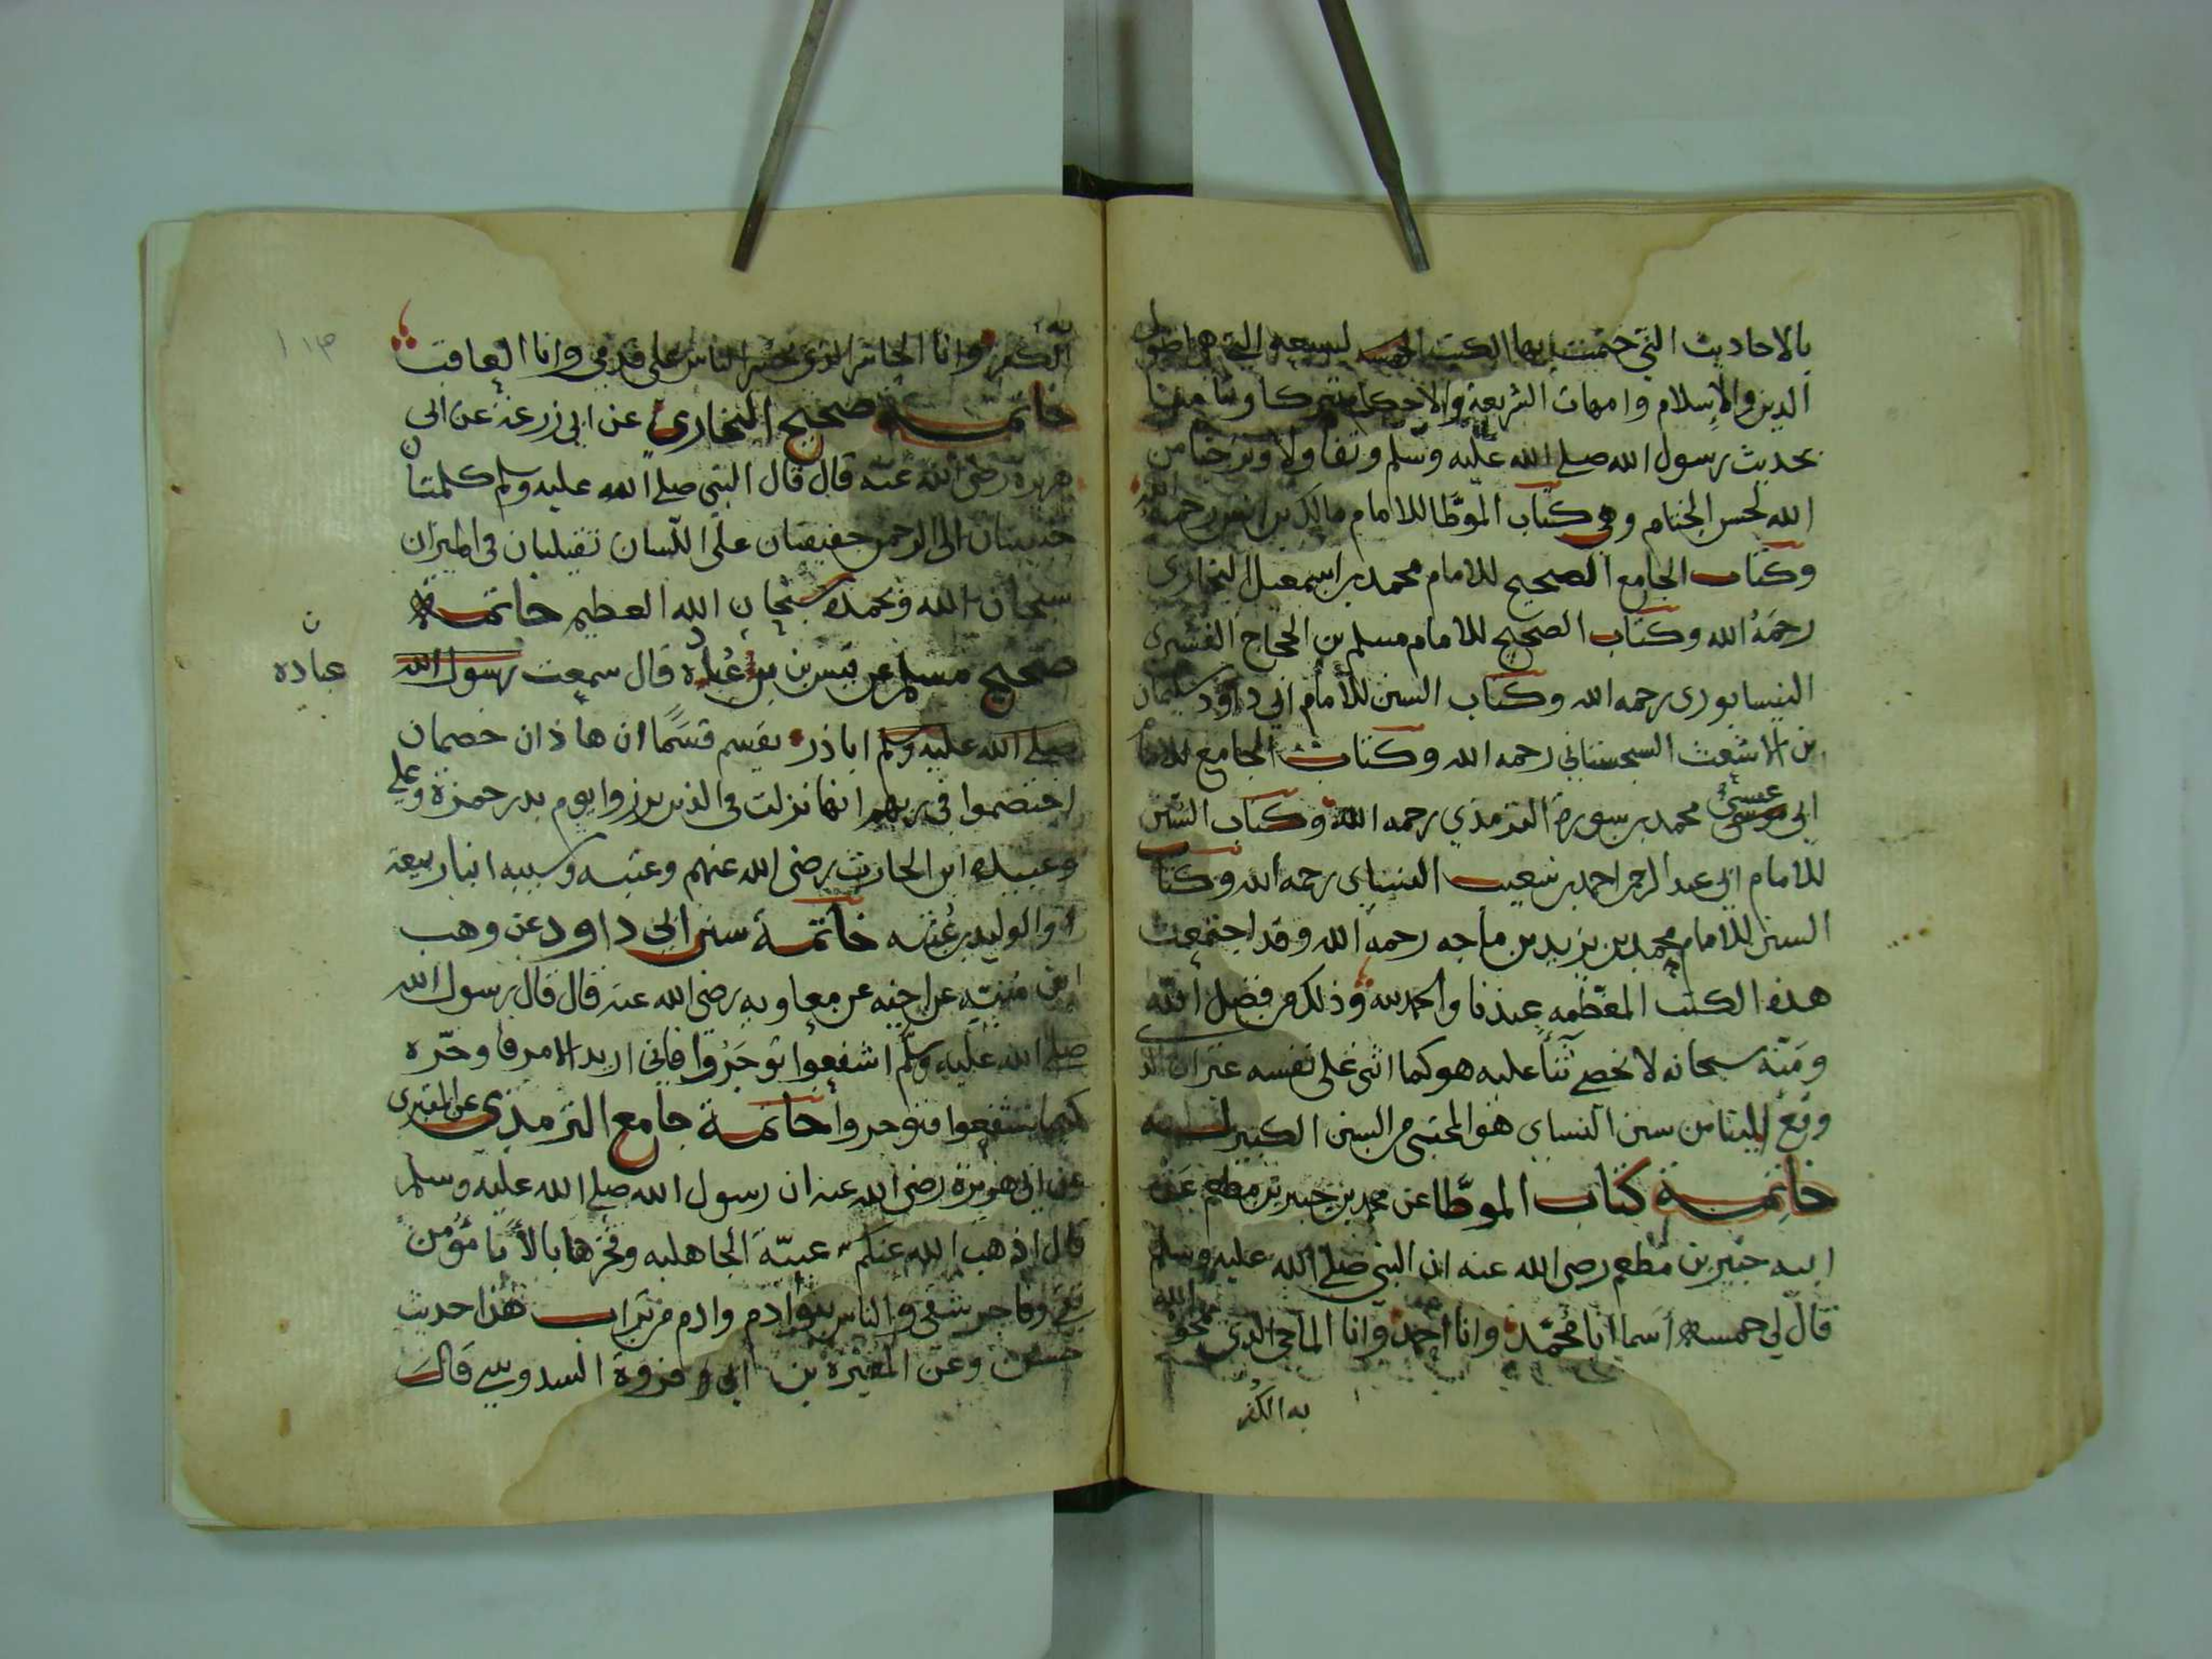 بالاحاديث التي ختمت بها الكتب التي هي اصول
الدين والاسلام وامهات الشريعة والاحكام تبركا
بحديث رسول الله صلى الله عليه وسلم وتفاولا من
الله لحسن الختام وهي كتاب الموطا للامام مالك بن انس رحمه الله
وكتاب الجامع الصحيح للامام محمد بن اسمعيل البخاري
رحمه الله وكتاب الصحيح للامام مسلم بن الحجاج القشيري
النيسابوري رحمه الله وكتاب السنن للامام ابي داود سليمان
بن الاشعث السجستاني رحمه الله وكتاب الجامع للامام
ابي عيسى محمد بن سورة الترمذي رحمه الله وكتاب السنن
للامام ابي عبد الرحمن احمد بن شعيب النسياي رحمه الله وكتاب
السنن للامام محمد بن يزيد بن ماجه رحمه الله وقد اجتمعت
هذه الكتب المعظمه عندنا والحمد لله وذلك من فضل الله
ومنه سبحانه لا نحصي ثنأ عليه هو كما اثنى على نفسه غير ان الذي
وقع الينا من سنن النساي هو المجتبى من السنن الكبير
خاتمة كتاب الموطّا عن محمد بن جبير بن مطعم عن
ابيه جبير بن مطعم رضي الله عنه ان النبي صلى الله عليه وسلم
قال لي خمسة أسما انا محمّد وانا احمد وانا الماحي الذي يمحو الله
به الكفر
به الكفر وانا الحاشر الذي يحشر الناس على قدمي وانا العاقب
خاتمة صحيح البخاري عن ابي زرعة عن ابي
هريرة رضي الله عنه قال قال النبي صلى الله عليه وسلم كلمتان
حبيبتان الى الرحمن خفيفتان على اللسان ثقيلتان في الميزان
سبحان الله وبحمده سبحان الله العظيم خاتمة
صحيح مسلم عن قيس بن عباد قال سمعت رسول الله
ن
عباده
صلى الله عليه وسلم اباذر يقسم قسمًا ان هاذان خصمان
اختصموا في ربهم انها نزلت في الذين برزوا يوم بدر حمزة وعلي
وعبيدة ابن الحارث رضي الله عنهم وعتبه وشيبه ابنا ربيعة
والوليد بن عُتبه خاتمة سنن ابي داود عن وهب
ابن مُنبّه عن اخيه عن معاويه رضي الله عنه قال قال رسول الله
صلى الله عليه وسلم اشفعوا توجَرُوا فاني اريد الامر فاوخّره
كيما تشفعوا فتوجروا خاتمة جامع الترمذي عن المقبري
عن ابي هريرة رضي الله عنه ان رسول الله صلى الله عليه وسلم
قال اذهب الله عنكم عبيّة الجاهلية وفخرها بالأبا مؤمن
تقي وفاجر شقي والناس بنو ادم وادم من تراب هذا حديث
حسن وعن المغيرة بن ابي فروة السدوسي قال